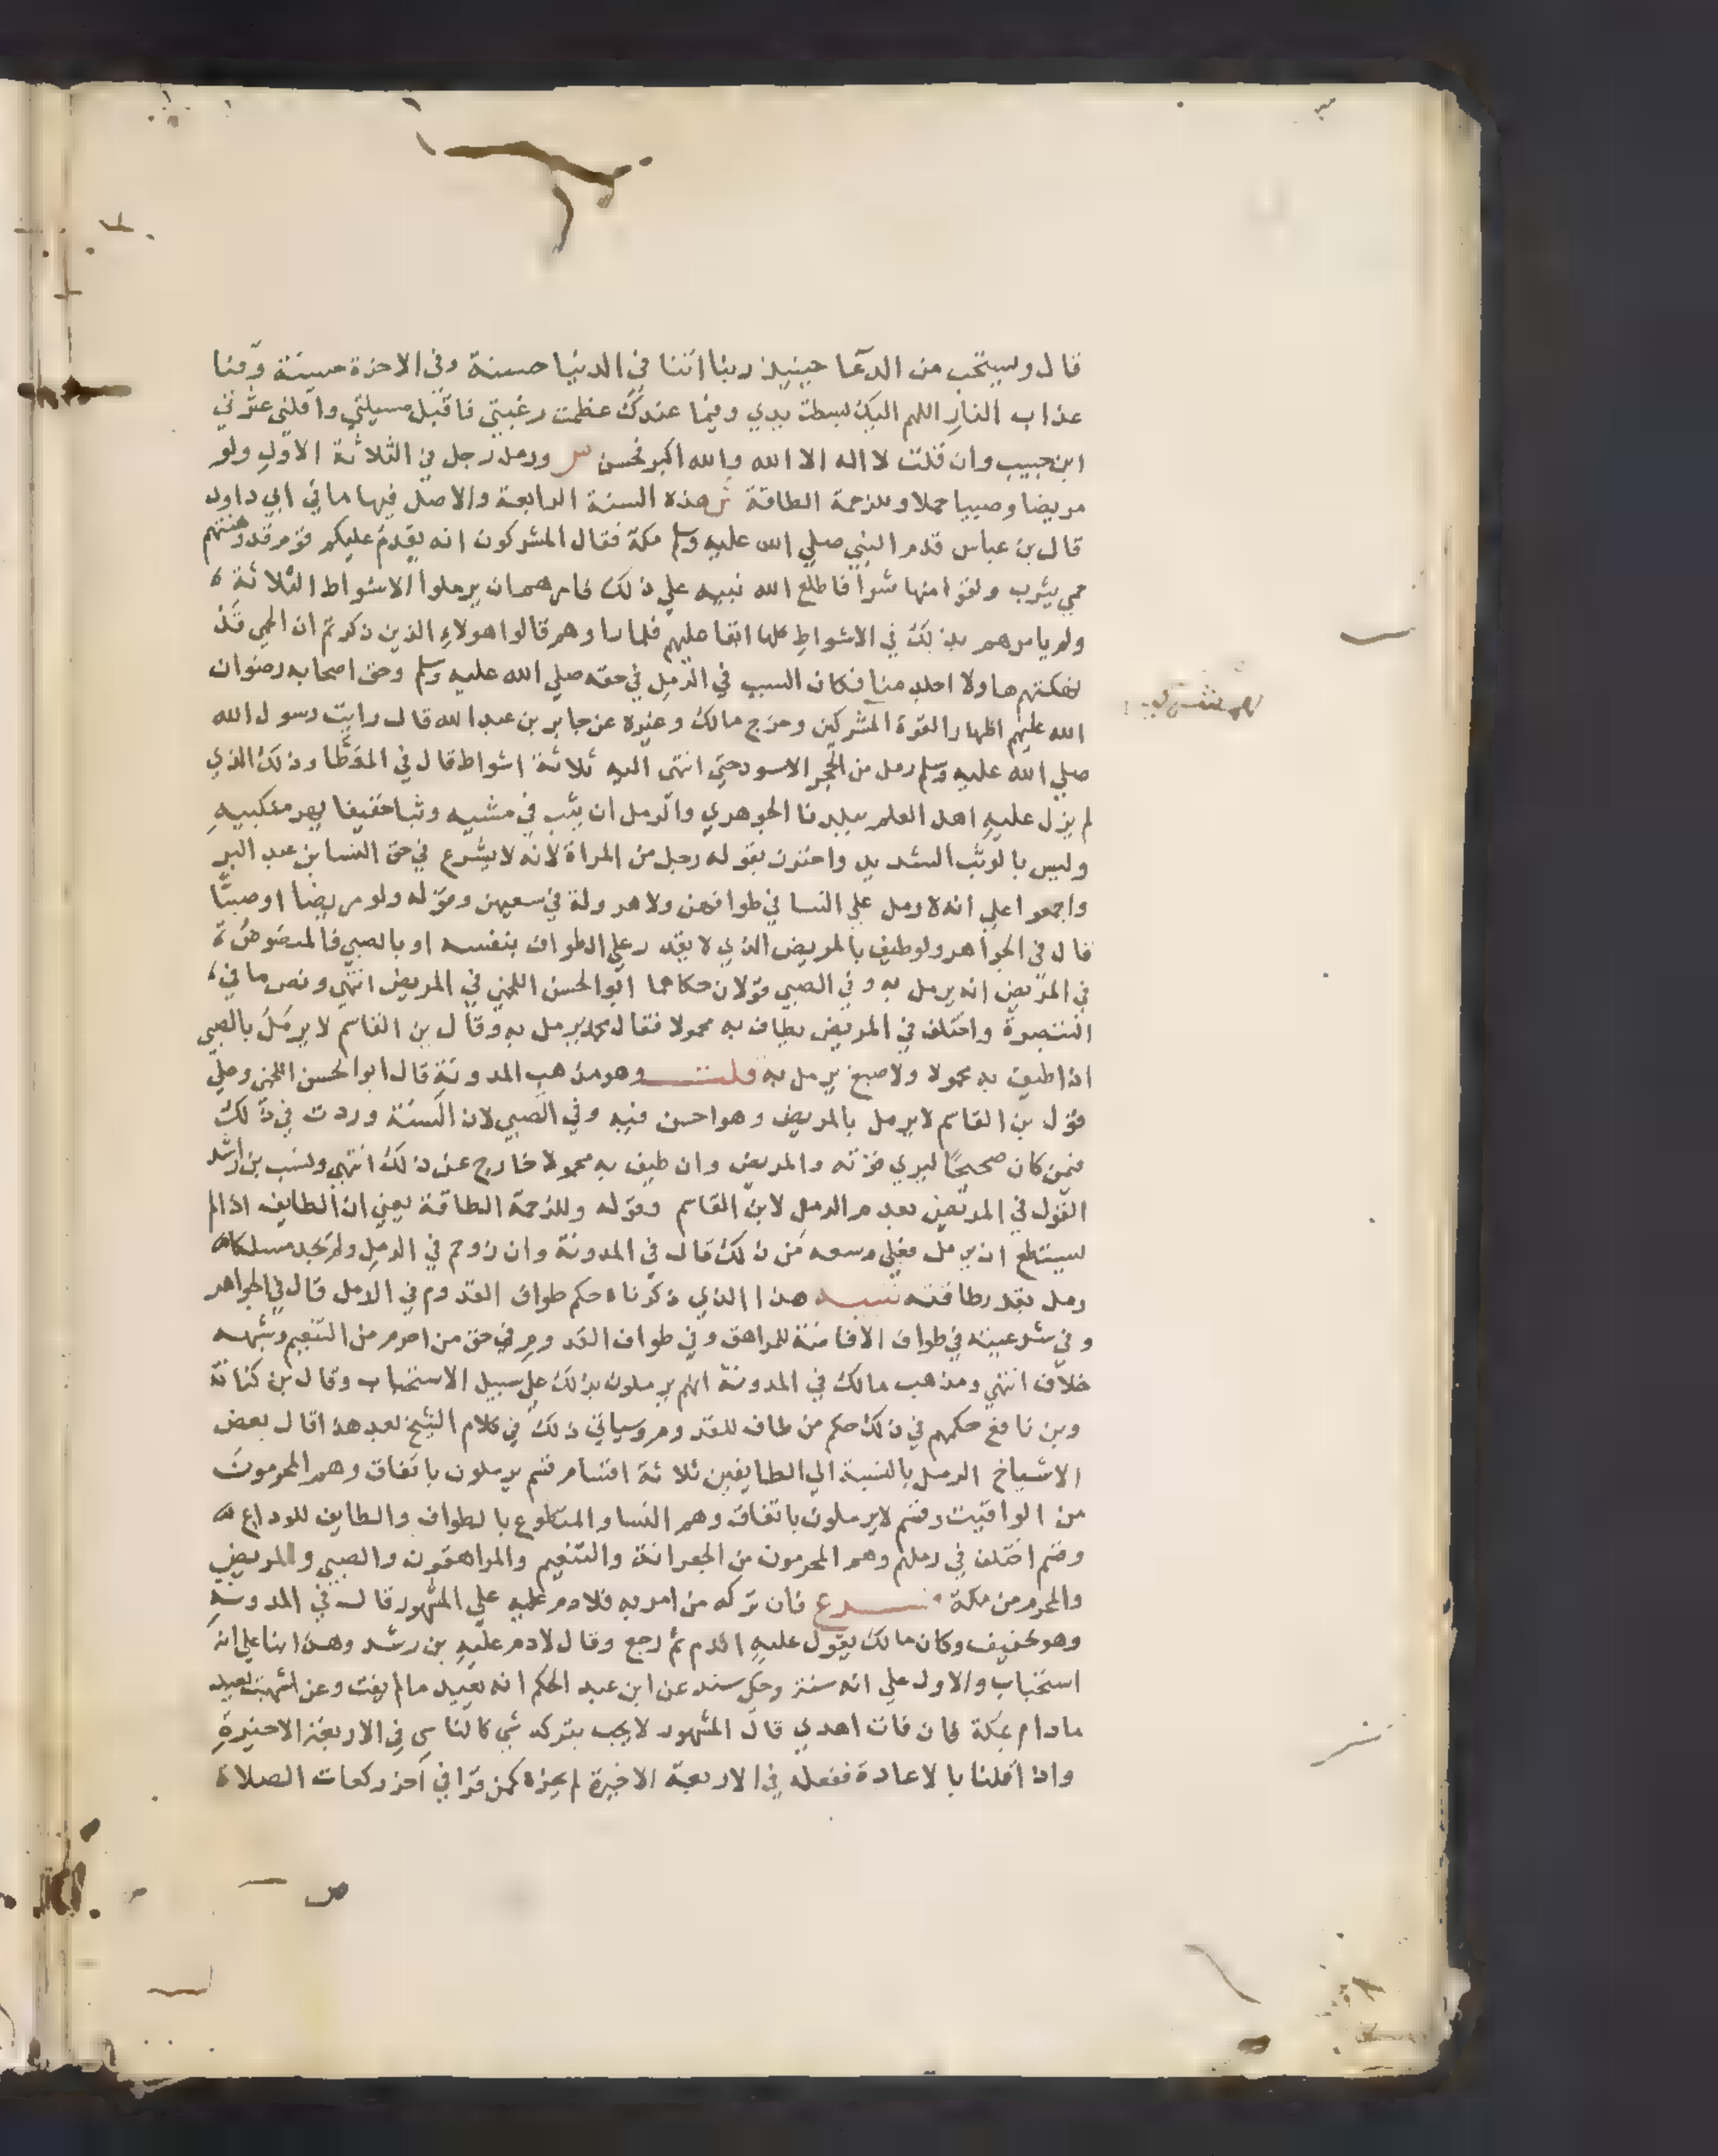 قال ويستحب من الدعا حينيذ ربنا اتنا في الدنيا حسنة وفي الاخرة حسنة وقنا
عذاب النار اللهم اليك بسطت يدي وفيما عندك عظمت رغبتي فاقبل مسيلتي واقلني عثرتي
ابن حبيب وان قلت لا اله الا الله والله اكبر فحسن ص ورمل رجل في الثلاثة الاول ولو
مريضا وصبيا حملا وللزحمة الطاقة ش هذه السنة الرابعة والاصل فيها ما في ابي داود
قال بن عباس قدم النبي صلي الله عليه وسلم مكة فقال المشركون انه يقدم عليكم قوم قد وهنتهم
حمي يثرب ولقوا منها شرا فاطلع الله نبيه علي ذلك فامرهم ان يرملوا الاشواط الثلاثة
ولم يامرهم بذلك في الاشواط كلها ابقا عليهم فلما راوهم قالوا هولاء الذين ذكرتم ان الحمي قد
نهكتهم ها ولا اجلد منا فكان السبب في الرمل في حقه صلي الله عليه وسلم وحق اصحابه رضوان
الله عليهم اظهار القوة المشركين وخرج مالك وغيره عن جابر بن عبد الله قال رايت رسول الله
صلي الله عليه وسلم رمل من الحجر الاسود حتي انتهي اليه ثلاثة اشواط قال في الموطا وذلك الذي
لم يزل عليه اهل العلم ببلدنا الجوهري والرمل ان يثب في مشيه وثبا خفيفا يهز منكبيه
وليس بالوثب الشديد واحترز بقوله رجل من المراة لانه لا يشرع في حق النسا بن عبد البر
واجمعوا علي انه لا رمل علي النسا في طوافهن ولا هرولة في سعيهن وقوله ولو مريضا او صبيا
قال في الجواهر ولو طيف بالمريض الذي لا يقدر علي الطواف بنفسه او بالصبي فالمنصوص
في المريض انه يرمل به وفي الصبي قولان حكاهما ابو الحسن اللخمي في المريض انتهي ونص ما في
التبصرة واختلف في المريض يطاف به محمولا فقال محمد يرمل به وقال بن القاسم لا يرمل بالصبي
اذا طيف به محمولا ولاصبغ يرمل به قلت وهو مذهب المدونة قال ابو الحسن اللخمي وعلي
قول بن القاسم لا يرمل بالمريض وهو احسن فيه وفي الصبي لان السنة وردت في ذلك
فيمن كان صحيحا ليري قوته والمريض وان طيف به محمولا خارج عن ذلك انتهي ونسب بن راشد
القول في المريض بعدم الرمل لابن القاسم وقوله وللزحمة الطاقة يعني ان الطايف اذا لم
يستطع ان يرمل فعلي وسعه من ذلك قال في المدونة وان زوحم في الرمل ولم يجد مسلكا
رمل بقدر طاقته تنبيه هذا الذي ذكرناه حكم طواف القدوم في الرمل قال في الجواهر
وفي شرعيته في طواف الافاضة للمراهق وفي طواف القدوم في حق من احرم من التنعيم وشبهه
خلاف انتهي ومذهب مالك في المدونة انهم يرملون بذلك علي سبيل الاستحباب وقال بن كنانة
وبن نافع حكمهم في ذلك حكم من طاف للقدوم وسياتي ذلك في كلام الشيخ بعد هذا قال بعض
الاشياخ الرمل بالنسبة الي الطايفين ثلاثة اقسام قسم يرملون باتفاق وهم المحرمون
من المواقيت وقسم لا يرملون باتفاق وهم النسا والمتطوع بالطواف والطايف للوداع
وقسم اختلف في رملهم وهم المحرمون من الجعرانة والتنعيم والمراهقون والصبي والمريض
والمحرم من مكة فرع فان تركه من امر به فلا دم عليه علي المشهور قال في المدونة
وهو خفيف وكان مالك يقول عليه الدم ثم رجع وقال لا دم عليه بن رشد وهذا بنا علي انه
استحباب والاول علي انه سنة وحكي سند عن ابن عبد الحكم انه يعيد ما لم يفت وعن اشهب يعيد
مادام بمكة فان فات اهدي قال المشهور لا يجب بتركه شي كالناسي في الاربعة الاخيرة
واذا قلنا بالاعادة ففعله في الاربعة الاخيرة لم يجزه كمن قرا في اخر ركعات الصلاة